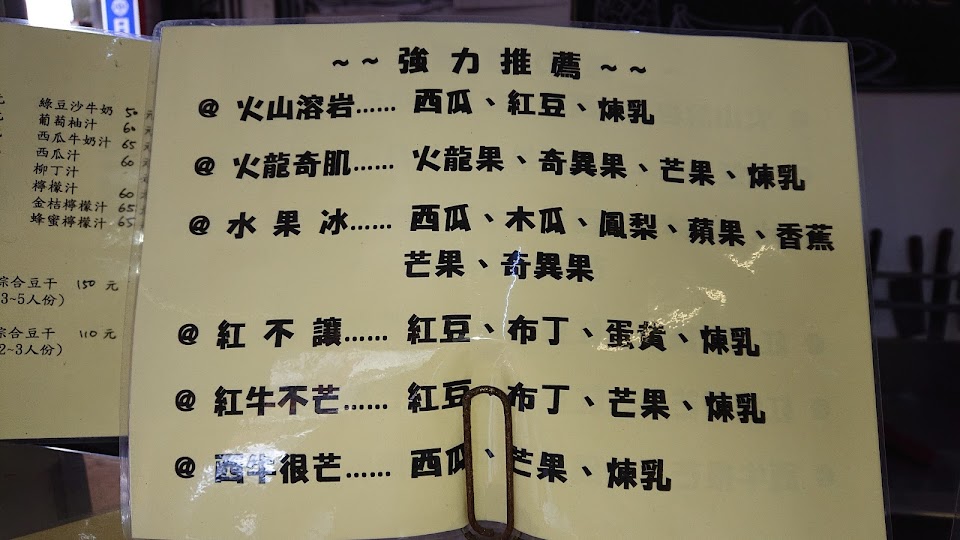 綠豆沙牛奶 50 元
葡萄柚汁 60
西瓜牛奶汁 65
西瓜汁 60
柳丁汁
檸檬汁 60
金桔檸檬汁 65
蜂蜜檸檬汁 65
綜合豆干 150 元
3~5人份）
綜合豆干 110 元
2~3人份）
~~強力推薦~~
@ 火山溶岩…… 西瓜、紅豆、煉乳
@ 火龍奇肌…… 火龍果、奇異果、芒果、煉乳
@ 水果冰…… 西瓜、木瓜、鳳梨、蘋果、香蕉
芒果、奇異果
@ 紅不讓…… 紅豆、布丁、蛋黃、煉乳
@ 紅牛不芒…… 紅豆、布丁、芒果、煉乳
@ 西牛很芒…… 西瓜、芒果、煉乳